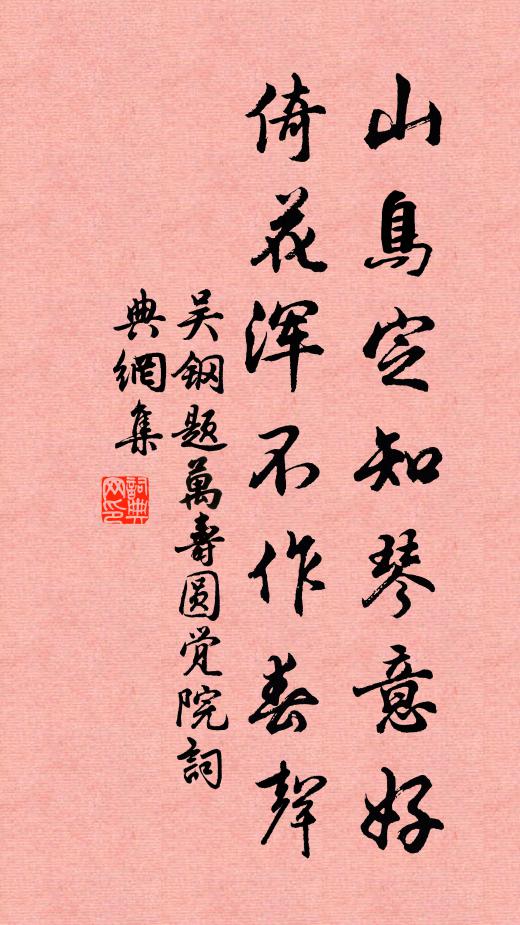 山鳥定知琴意好
倚花渾不作春聲
吴鋼题萬壽圆觉院詞
典網集
詞典網印